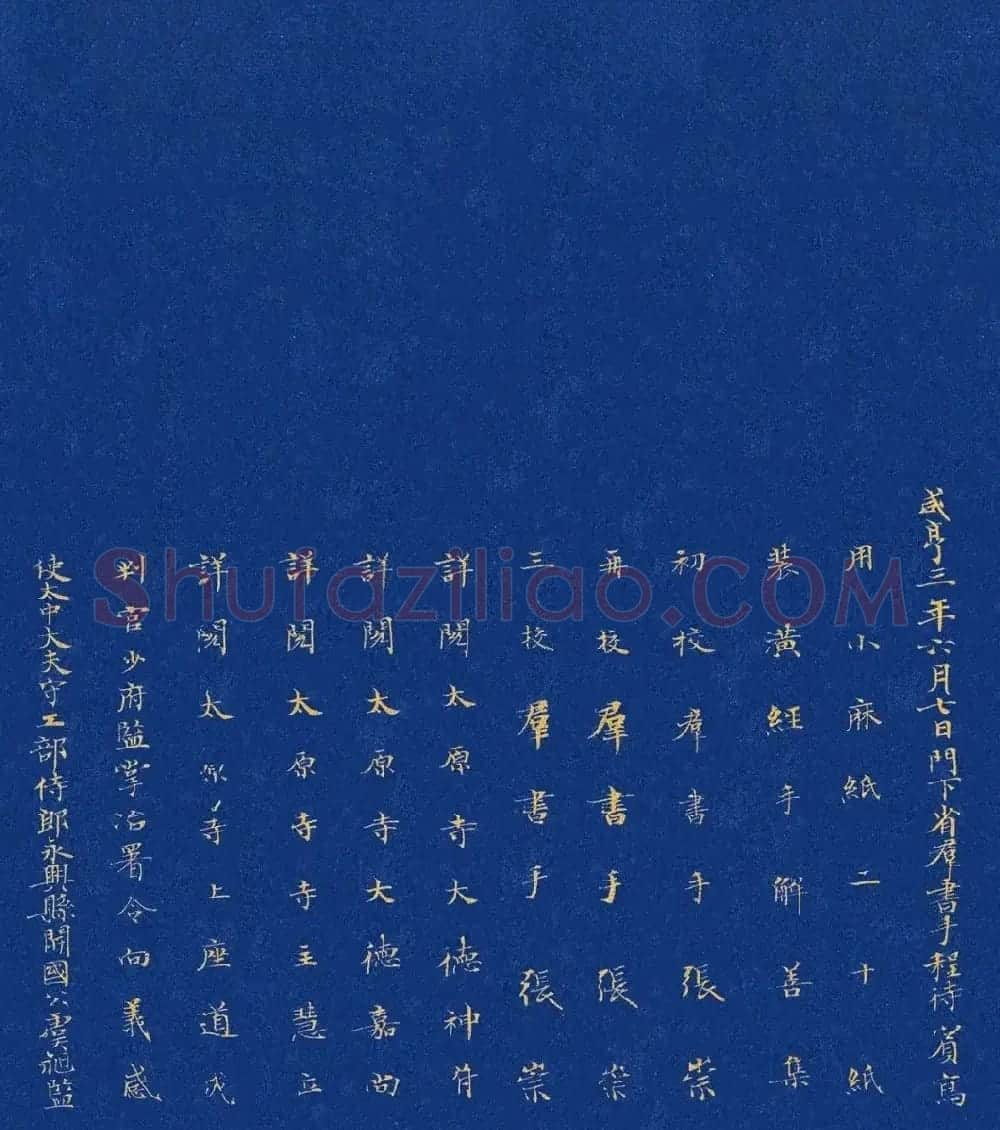 咸亨三年六月七日門下省羣書手程待賓寫
用小麻紙二十紙
裝潢經手解善集
初校羣書手張崇
再校羣書手張崇
三校羣書手張崇
詳閱太原寺大德神符
詳閱太原寺大德嘉尚
詳閱太原寺寺主慧立
詳閱太原寺上座道成
判官少府監掌冶署令向義感
使太中大夫守工部侍郎永興縣開國公虞昶監
Shufaziliao.COM